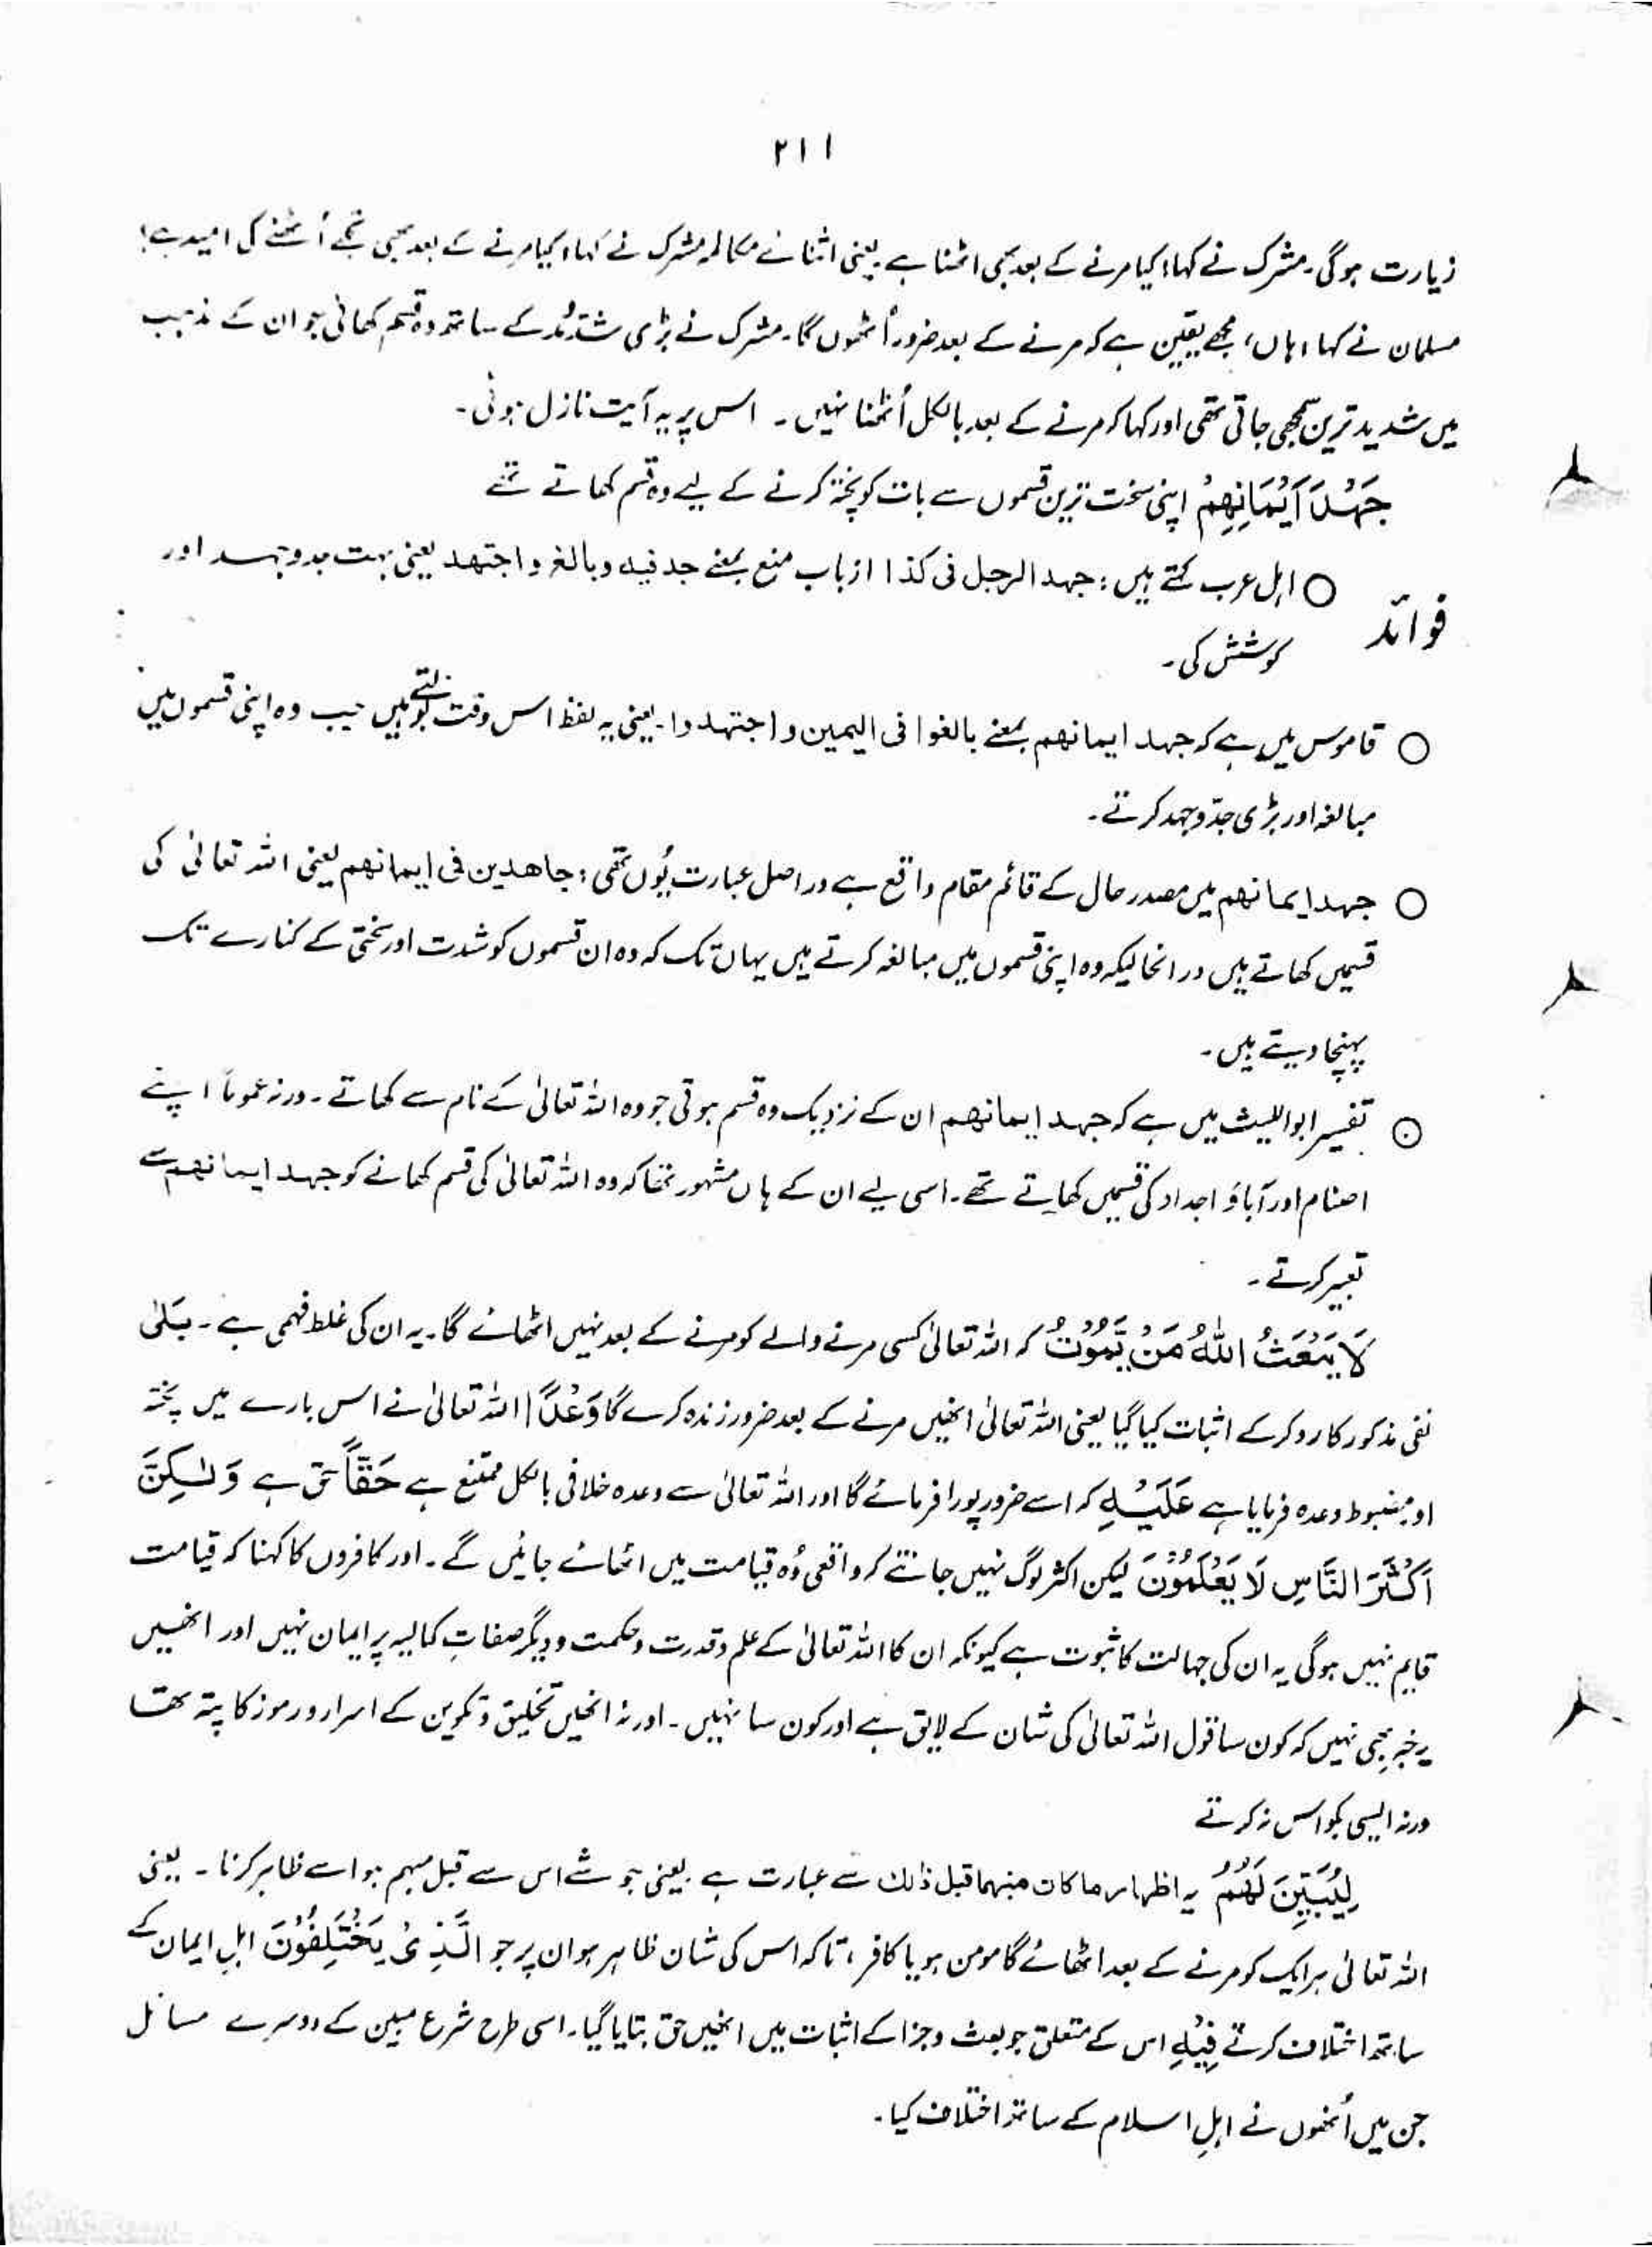 ۲۱۱
زیارت ہوگی۔ مشرک نے کہا، کیا مرنے کے بعد بھی اٹھنا ہے یعنی اثنائے مکالمہ مشرک نے کہا، کیا مرنے کے بعد بھی تجھے اُٹھنے کی امید ہے!
مسلمان نے کہا، ہاں، مجھے یقین ہے کہ مرنے کے بعد ضرور اُٹھوں گا۔ مشرک نے بڑی شد و مد کے ساتھ وہ قسم کھائی جو ان کے مذہب
میں شدید ترین سمجھی جاتی تھی اور کہا کہ مرنے کے بعد بالکل اُٹھنا نہیں۔ اس پر یہ آیت نازل ہوئی۔
جَهْدَ اَيْمَانِهِمْ اپنی سخت ترین قسموں سے بات کو پختہ کرنے کے لیے وہ قسم کھاتے تھے
فوائد ○ اہل عرب کہتے ہیں : جهد الرجل فی کذا از باب منع بمعنے جد فیہ و بالغ و اجتهد یعنی بہت جدوجہد اور
کوشش کی۔
○ قاموس میں ہے کہ جهد ایمانهم بمعنے بالغوا فی الیمین و اجتهدوا۔ یعنی یہ لفظ اس وقت بولتے ہیں جب وہ اپنی قسموں میں
مبالغہ اور بڑی جدّ و جہد کرتے۔
○ جهد ایمانهم میں مصدر حال کے قائم مقام واقع ہے دراصل عبارت یُوں تھی : جاهدین فی ایمانهم یعنی اللہ تعالیٰ کی
قسمیں کھاتے ہیں درانحالیکہ وہ اپنی قسموں میں مبالغہ کرتے ہیں یہاں تک کہ وہ ان قسموں کو شدت اور سختی کے کنارے تک
پہنچا دیتے ہیں۔
○ تفسیر ابو اللیث میں ہے کہ جهد ایمانهم ان کے نزدیک وہ قسم ہوتی جو وہ اللہ تعالیٰ کے نام سے کھاتے۔ ورنہ عموماً اپنے
اصنام اور آباؤ اجداد کی قسمیں کھاتے تھے۔ اسی لیے ان کے ہاں مشہور تھا کہ وہ اللہ تعالیٰ کی قسم کھانے کو جهد ایمانهم سے
تعبیر کرتے۔
لَا يَبْعَثُ اللّٰهُ مَنْ يَّمُوْتُ کہ اللہ تعالیٰ کسی مرنے والے کو مرنے کے بعد نہیں اٹھائے گا۔ یہ ان کی غلط فہمی ہے۔ بَلٰی
نفی مذکور کا رد کر کے اثبات کیا گیا یعنی اللہ تعالیٰ انھیں مرنے کے بعد ضرور زندہ کرے گا وَعْدًا اللہ تعالیٰ نے اس بارے میں پختہ
اور مضبوط وعدہ فرمایا ہے عَلَيْهِ کہ اسے ضرور پورا فرمائے گا اور اللہ تعالیٰ سے وعدہ خلافی بالکل ممتنع ہے حَقًّا حق ہے وَلٰكِنَّ
اَكْثَرَ النَّاسِ لَا يَعْلَمُوْنَ لیکن اکثر لوگ نہیں جانتے کہ واقعی وُہ قیامت میں اٹھائے جائیں گے۔ اور کافروں کا کہنا کہ قیامت
قایم نہیں ہوگی یہ ان کی جہالت کا ثبوت ہے کیونکہ ان کا اللہ تعالیٰ کے علم و قدرت و حکمت و دیگر صفاتِ کمالیہ پر ایمان نہیں اور انھیں
یہ خبر بھی نہیں کہ کون سا قول اللہ تعالیٰ کی شان کے لایق ہے اور کون سا نہیں۔ اور نہ انھیں تخلیق و تکوین کے اسرار و رموز کا پتہ تھا
ورنہ ایسی بکواس نہ کرتے
لِيُبَيِّنَ لَهُمُ یہ اظهار ما کان مبهما قبل ذالك سے عبارت ہے یعنی جو شے اس سے قبل مبہم ہو اسے ظاہر کرنا۔ یعنی
اللہ تعالیٰ ہر ایک کو مرنے کے بعد اٹھائے گا مومن ہو یا کافر، تاکہ اس کی شان ظاہر ہو ان پر جو الَّذِیْ يَخْتَلِفُوْنَ اہلِ ایمان کے
ساتھ اختلاف کرتے فِيْهِ اس کے متعلق جو بعث و جزا کے اثبات میں انھیں حق بتایا گیا۔ اسی طرح شرع مبین کے دوسرے مسائل
جن میں اُنھوں نے اہلِ اسلام کے ساتھ اختلاف کیا۔